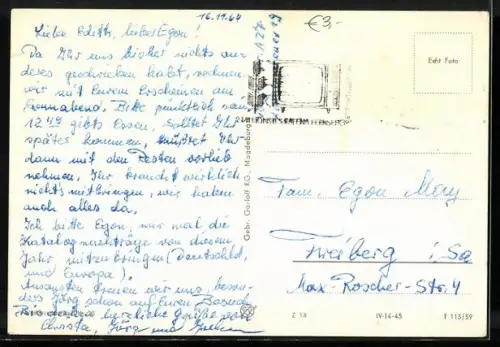 16.11.64
€3,-
Liebe Edith, lieber Egon!
Da Ihr uns bisher nichts an-
deres geschrieben habt, rechnen
wir mit Eurem Erscheinen am
Sonnabend. Bitte pünktlich um
12 45 gibts Essen, solltet Ihr
später kommen, müsstet Ihr
dann mit den Resten vorlieb
nehmen. Ihr braucht wirklich
nichts mitbringen, wir haben
auch alles da.
Ich bitte Egon, nur mal die
Katalognachträge von diesem
Jahr mitzubringen (Deutschld.
und Europa).
Ansonsten freuen wir uns, beson-
ders Jörg schon auf Euren Besuch.
Bis dahin herzliche Grüße von
Christa, Jörg und
Gebr. Garloff KG., Magdeburg
Echt Foto
Fam. Egon
Freiberg i. Sa
Max-Roscher-Str. 4
Z 18 IV-14-45 T 113/59